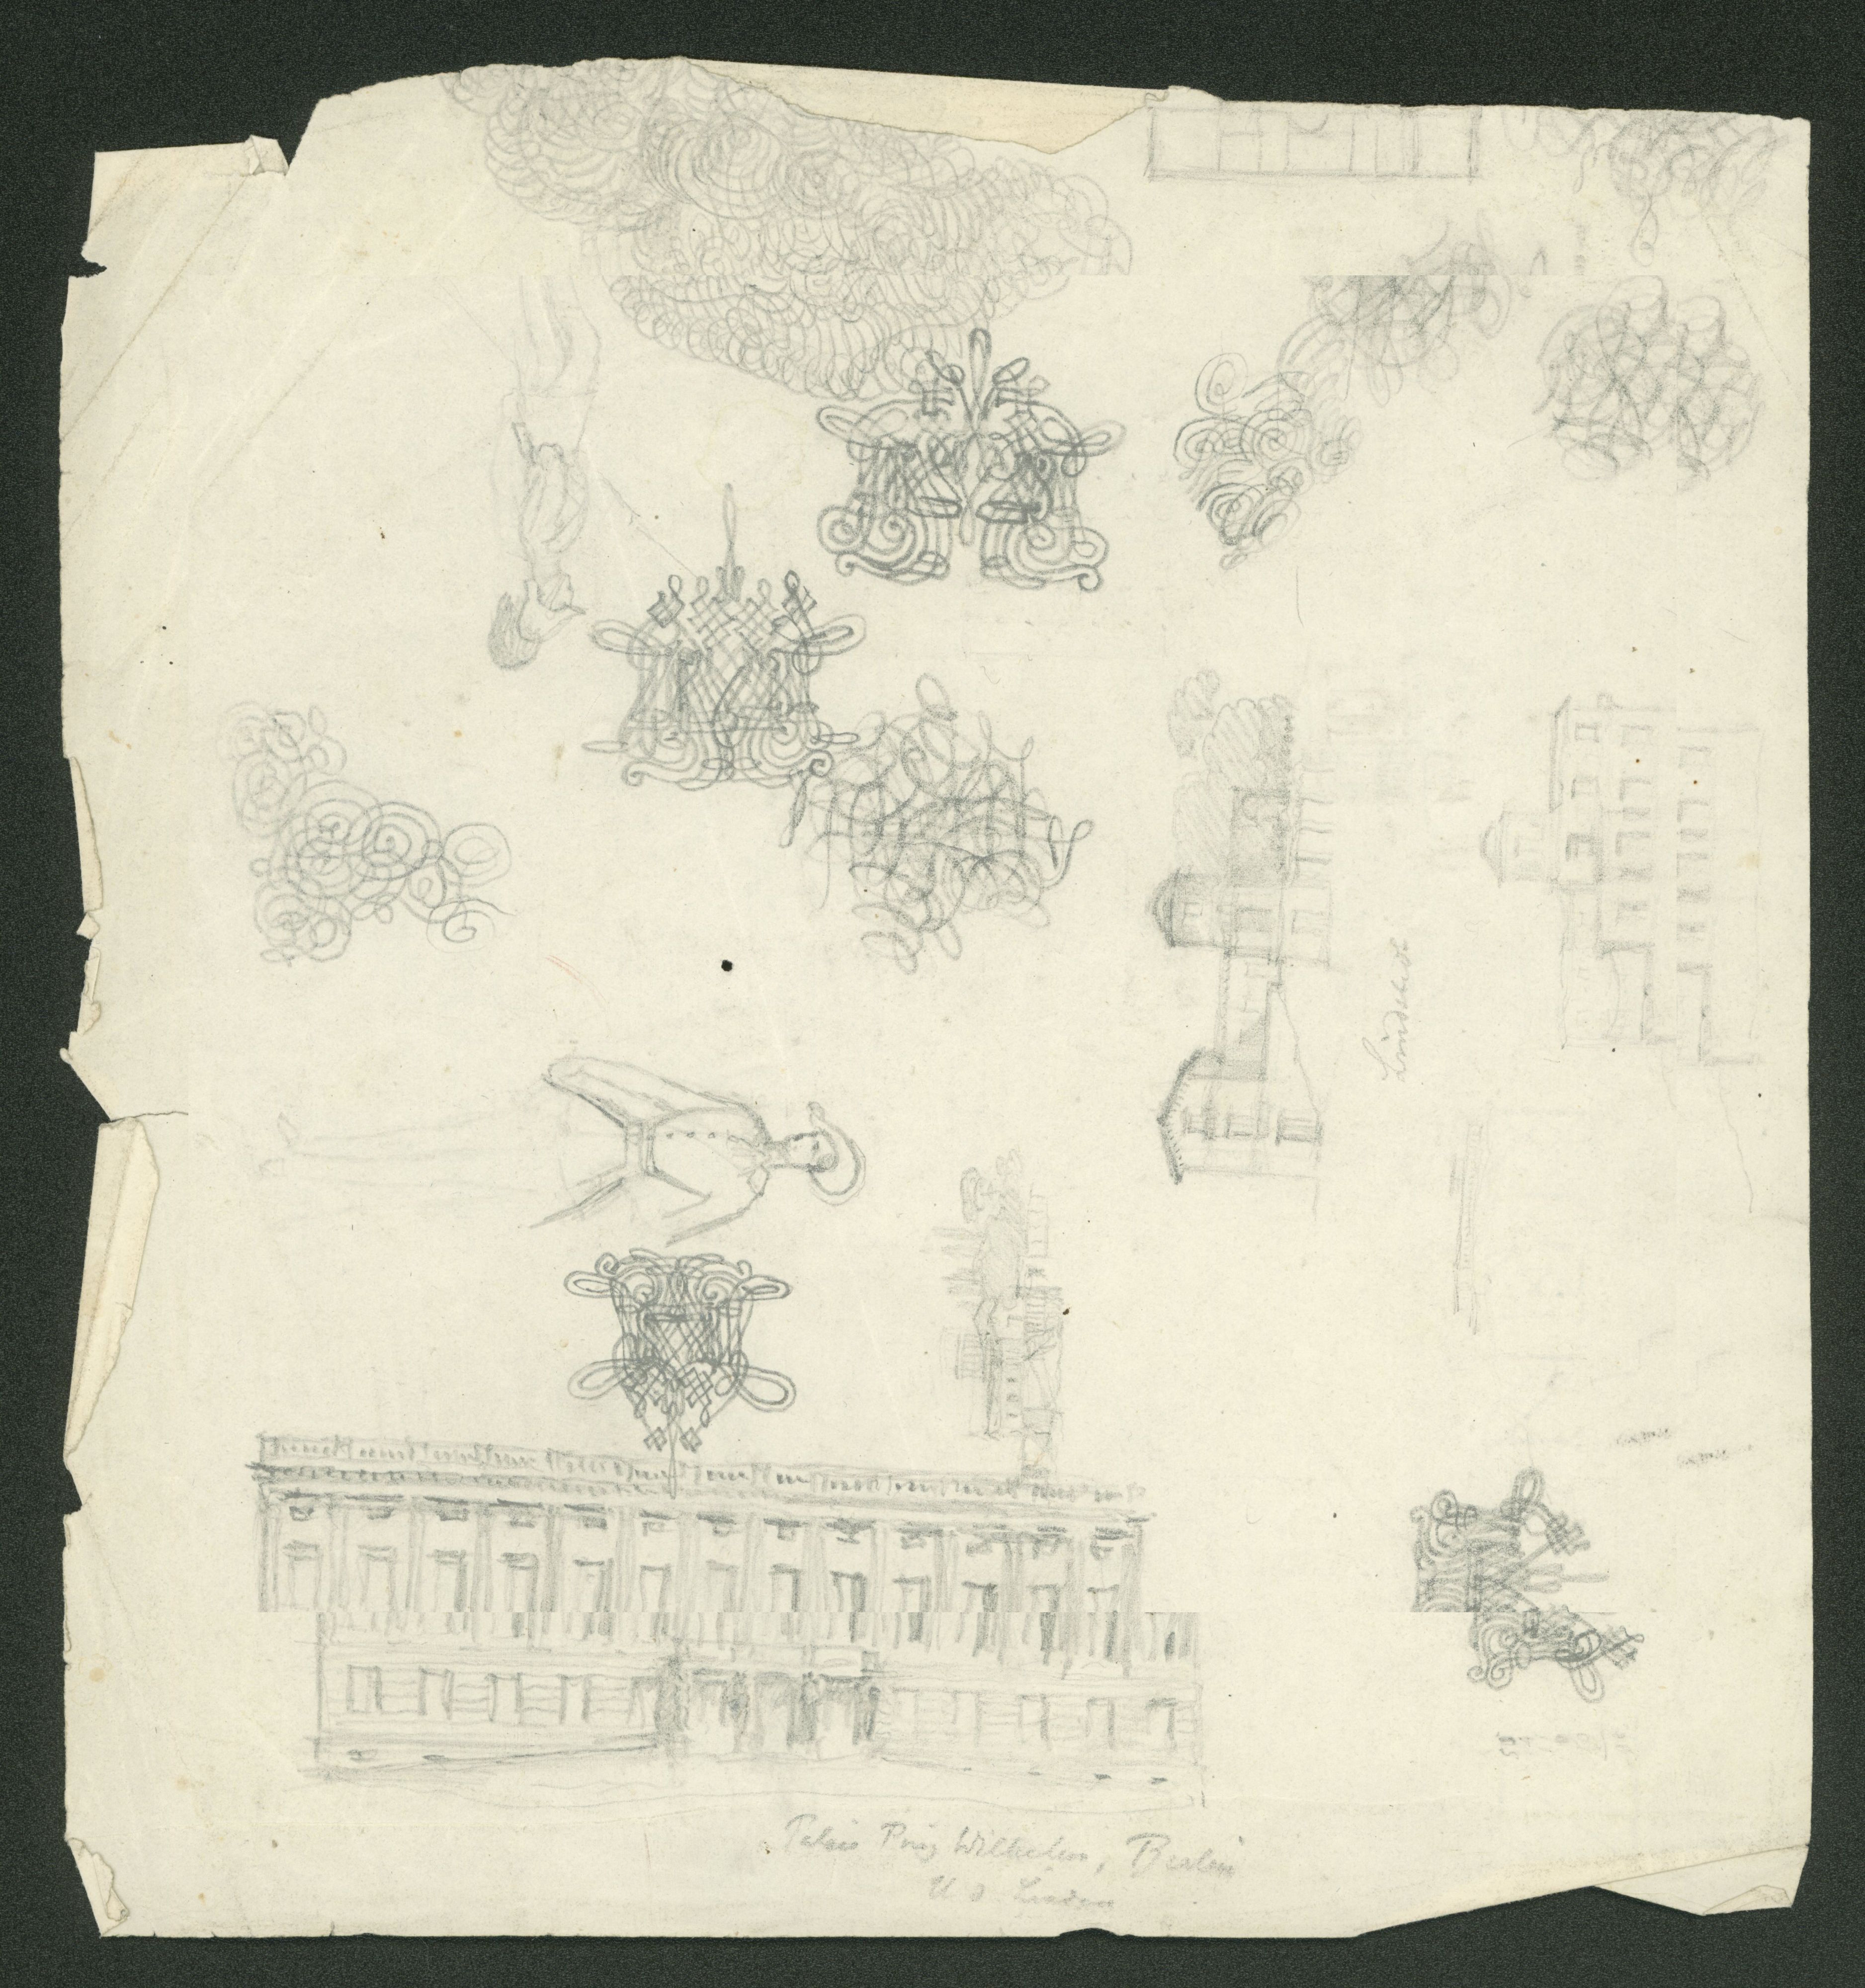 Lindstedt
Palais Prinz Wilhelm, Berlin
U. d. Linden